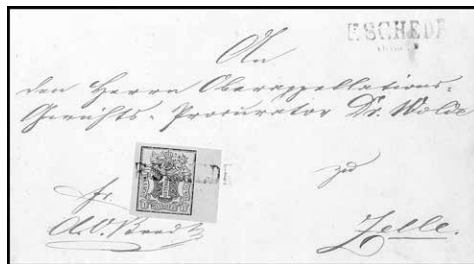 ESCHEDE
An
den Herrn Oberappellations-
Gerichts-Procurator Dr.
ESCHEDE
1
zu
fr.
Zelle.